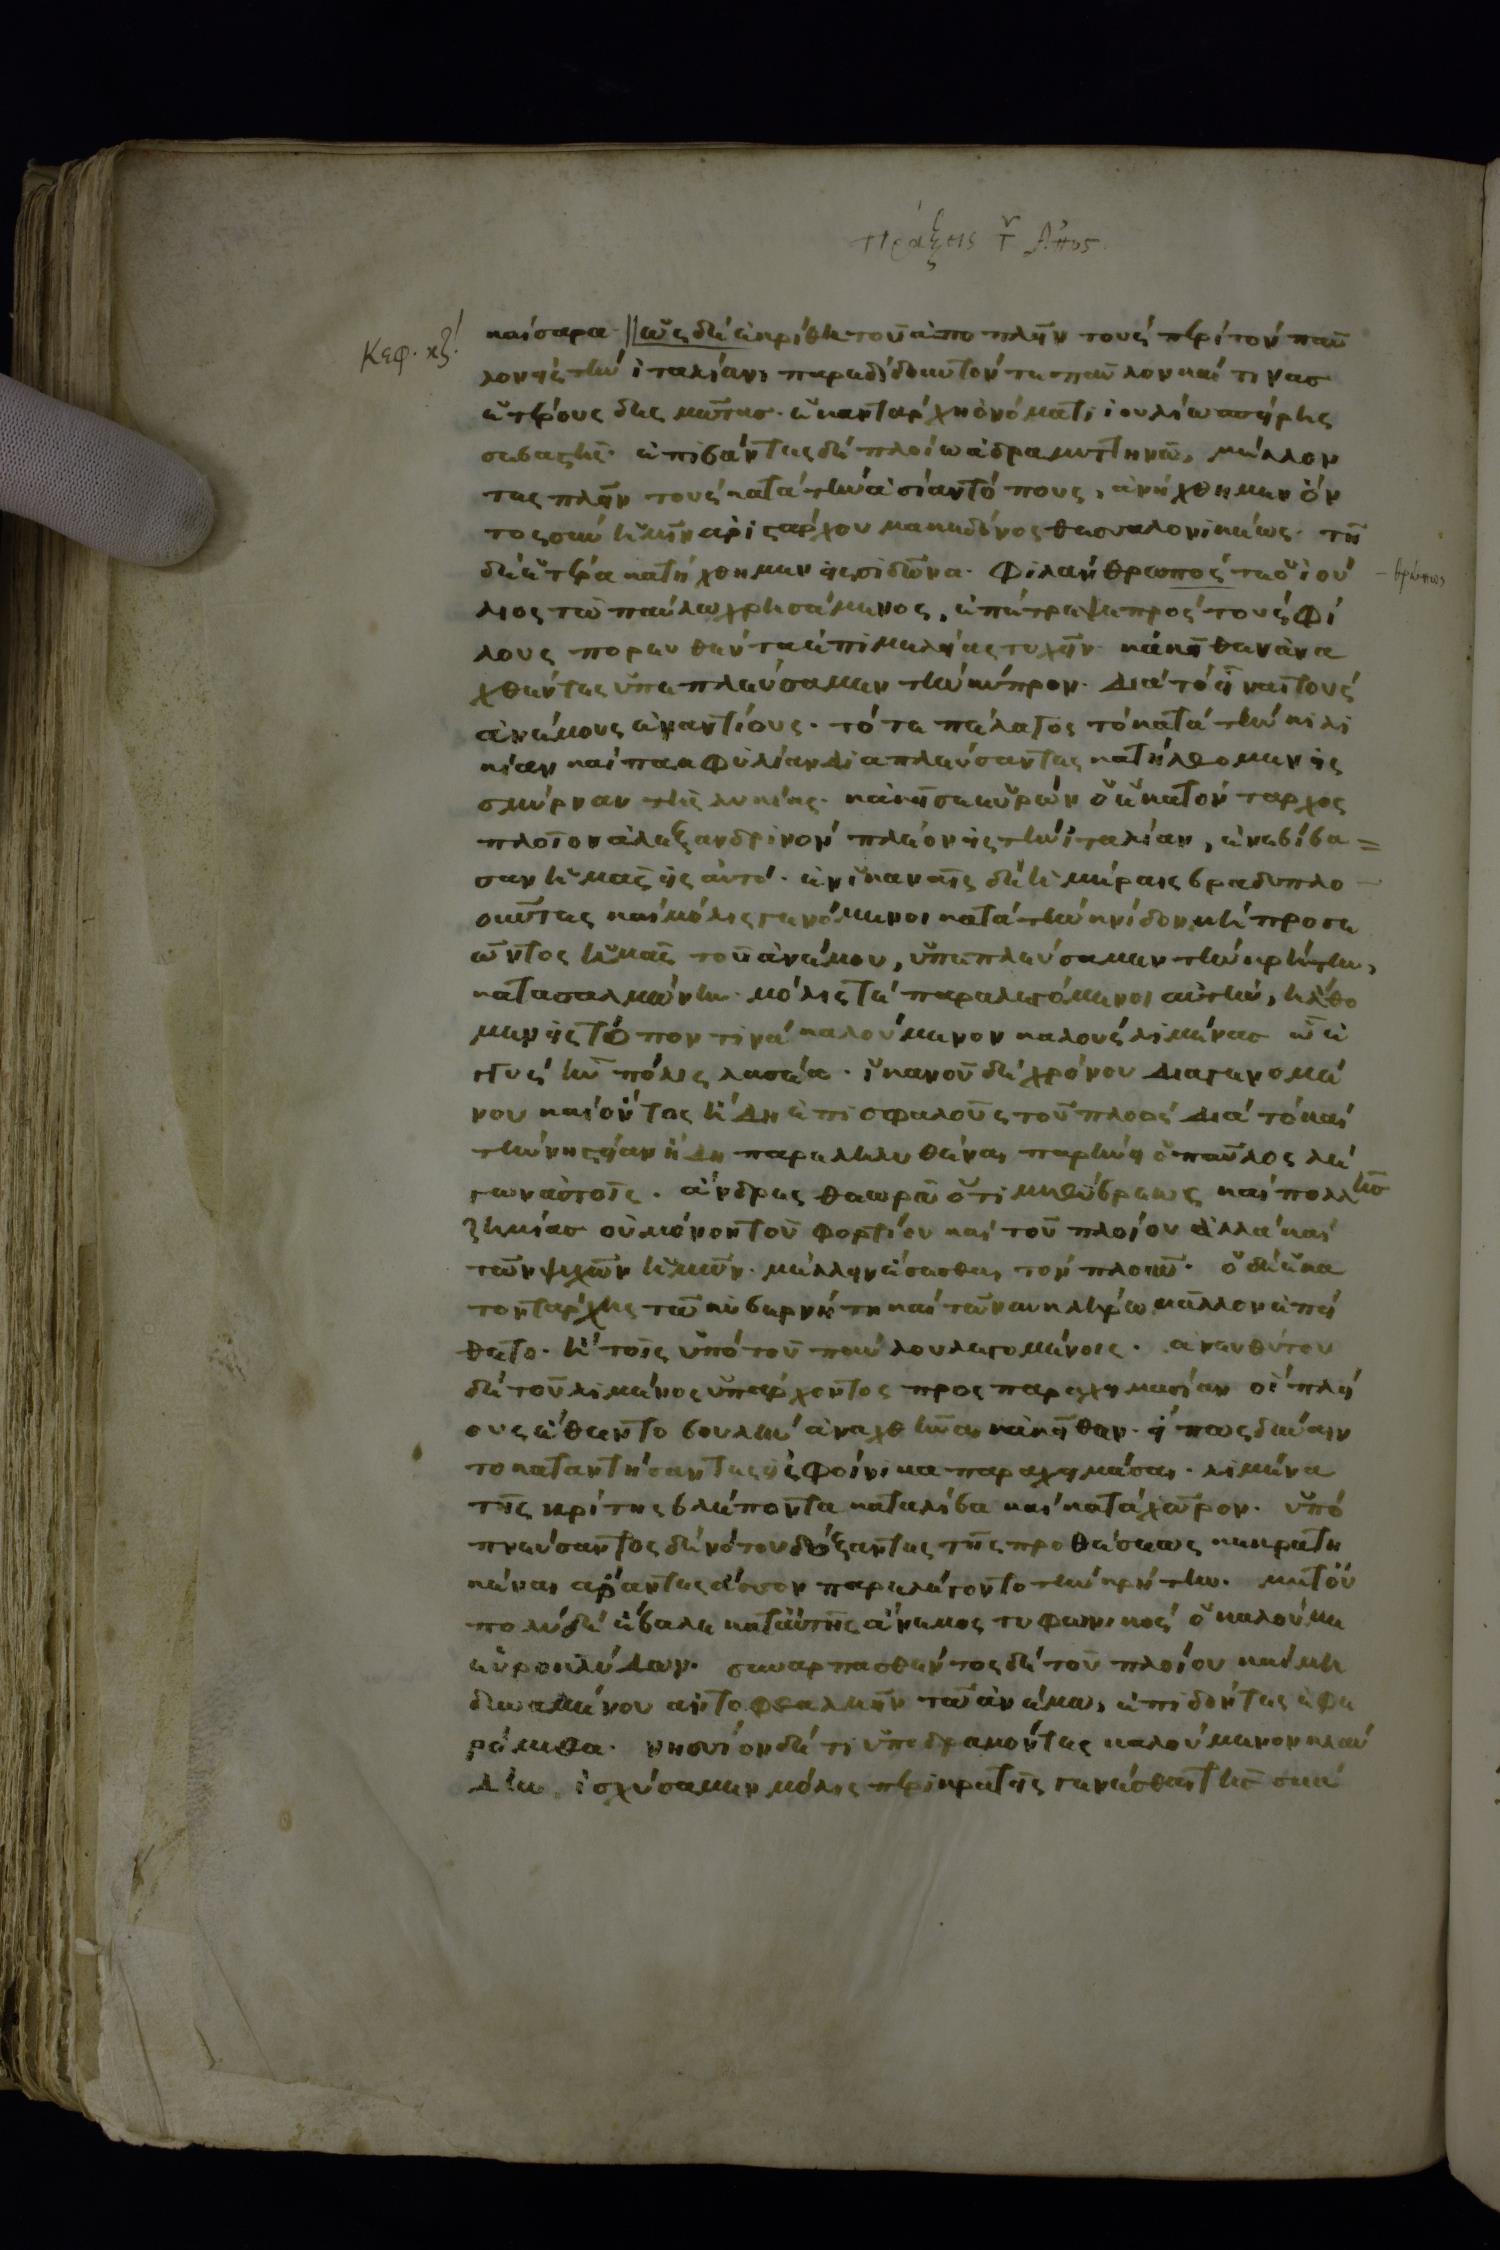 Πράξεις τ Αποσ
Κεφ. κζ΄
καίσαρα ὡς δὲ ἐκρίθη τοῦ ἀποπλεῖν τοὺς περὶ τὸν παῦ
λον εἰς τὴν ἰταλίαν, παρεδίδου τόν τε παῦλον καί τινας
ἑτέρους δεσμώτας· ἑκαντάρχη ὀνόματι ἰουλίω σπείρης
σεβαστῆς· ἐπιβάντες δὲ πλοίω ἀδραμυττηνῶ, μέλλον
τες πλεῖν τοὺς κατὰ τὴν ἀσίαν τόπους, ἀνήχθημεν ὄν
τος σὺν ἡμῖν ἀριστάρχου μακεδόνος θεσσαλονικέως· τῆ
δὲ ἑτέρα κατήχθημεν εἰς σιδῶνα· φιλανθρωπος τε ὁ ἰού
λιος τῶ παύλω χρησάμενος, ἐπέτρεψε πρὸς τοὺς φί
λους πορευθέντα ἐπιμελείας τυχεῖν κἀκεῖθεν ἀνα
χθέντες ὑπεπλεύσαμεν τὴν κύπρον· διὰ τὸ εἶναι τοὺς
ἀνέμους ἐναντίους· τό τε πέλαγος τὸ κατὰ τὴν κιλι
κίαν καὶ παμφυλίαν διαπλεύσαντες κατήλθομεν εἰς
σμύρναν τῆς λυκίας· κἀκεῖσε εὑρὼν ὁ ἑκατόνταρχος
πλοῖον ἀλεξανδρινὸν πλέον εἰς τὴν ἰταλίαν, ἐνεβίβα
σεν ἡμᾶς εἰς αὐτό· ἐν ἱκαναῖς δὲ ἡμέραις βραδυπλο
οῦντες καὶ μόλις γενόμενοι κατὰ τὴν κνίδον μὴ προσε
ῶντος ἡμᾶς τοῦ ἀνέμου, ὑπεπλεύσαμεν τὴν κρήτην,
κατα σαλμώνην· μόλις τὲ παραλεγόμενοι αὐτὴν, ἤλθο
μεν εἰς τόπον τινὰ καλούμενον καλοὺς λιμένας ὧ ἐ
γγὺς ἦν πόλις λασέα· ἱκανοῦ δὲ χρόνου διαγενομέ
νου καὶ ὄντος ἤδη ἐπισφαλοῦς τοῦ πλοὸς διὰ τὸ καὶ
τὴν νηστείαν ἤδη παρεληλυθέναι παρήνει ὁ παῦλος λέ
γων αὐτοῖς· ἄνδρες θεωρῶ ὅτι μεθ ὕβρεως καὶ πολλῆσ
ζημίας οὐ μόνον τοῦ φορτίου καὶ τοῦ πλοίου ἀλλὰ καὶ
τῶν ψυχῶν ἡμῶν· μέλλειν ἔσεσθαι τὸν πλοῦν· ὁ δὲ ἑκα
τοντάρχης τῶ κυβερνήτη καὶ τῶ ναυκλήρω μᾶλλον ἐπεί
θετο· ἢ τοῖς ὑπὸ τοῦ παύλου λεγομένοις· ἀνευθέτου
δὲ τοῦ λιμένος ὑπάρχοντος προς παραχειμασίαν οἱ πλεί
ους ἔθεντο βουλὴν ἀναχθῆναι κἀκεῖθεν· εἴ πως δύναιν
το καταντήσαντες εἰς φοίνικα παραχειμάσαι· λιμένα
τῆς κρίτης βλέποντα κατα λίβα καὶ κατὰ χῶρον· ὑπο
πνεύσαντος δὲ νότου δόξαντες τῆς προθέσεως κεκρατη
κέναι ἄραντες ἆσσον παρελέγοντο τὴν κρήτην· μετ οὐ
πολὺ δὲ ἔβαλε κατ αὐτῆς ἄνεμος τυφωνικὸς ὁ καλούμε
εὐροκλύδων· συναρπασθέντος δὲ τοῦ πλοίου καὶ μὴ
δυναμένου ἀντοφθαλμεῖν τῶ ἀνέμω, ἐπιδόντες ἐφε
ρόμεθα· νησίον δέ τι ὑποδραμόντες καλούμενον κλαύ
δην ἰσχύσαμεν μόλις περικρατεῖς γενέσθαι τῆς σκά